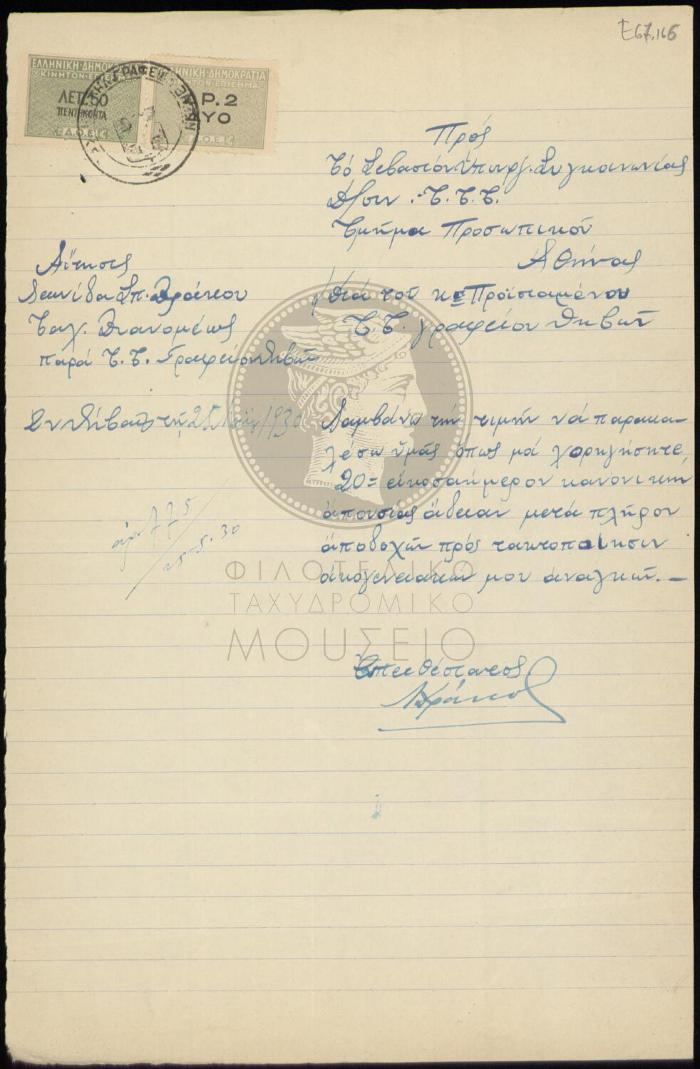 Ε67.166
ΕΛΛΗΝΙΚΗ ΔΗΜΟΚΡΑΤΙΑ
ΚΙΝΗΤΟΝ ΕΠΙΣΗΜΑ
ΛΕΠ. 50
ΠΕΝΤΗΚΟΝΤΑ
Ε.Δ.Ο.Ε.
ΔΗΜΟΚΡΑΤΙΑ
ΕΠΙΣΗΜΑ
ΔΡ. 2
ΔΥΟ
Πρός
Τό Σεβαστόν Υπουργ. Συγκοινωνίας
Δ/σιν . Τ.Τ.Τ.
Τμήμα Προσωπικού
Αθήνας
Αίτησις
Λεωνίδα Σπ. Δράκου
Ταχ. Διανομέως
παρά Τ.Τ. Γραφείον Θηβών
Διά του κου Προϊσταμένου
Τ.Τ. γραφείον Θηβών
Εν Θήβαις τη 25 1930
Λαμβάνω την τιμήν νά παρακα-
λέσω υμάς όπως μοί χορηγήσητε,
20= είκοσαήμερον κανονικήν
απουσίας άδειαν μετά πλήρον
αποδοχών πρός τακτοποίησιν
οικογενειακών μου αναγκών. —
αρ. 775
25-5-30
ΦΙΛΟΤΕΛΙΚΟ
ΤΑΧΥΔΡΟΜΙΚΟ
ΜΟΥΣΕΙΟ
Ευπειθέστατος
Δράκος